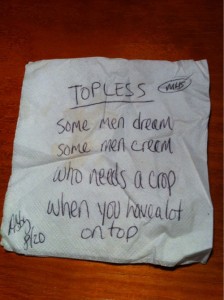 TOPLESS
some men dream
some men cream
who needs a crop
when you have a lot
on top
8/20